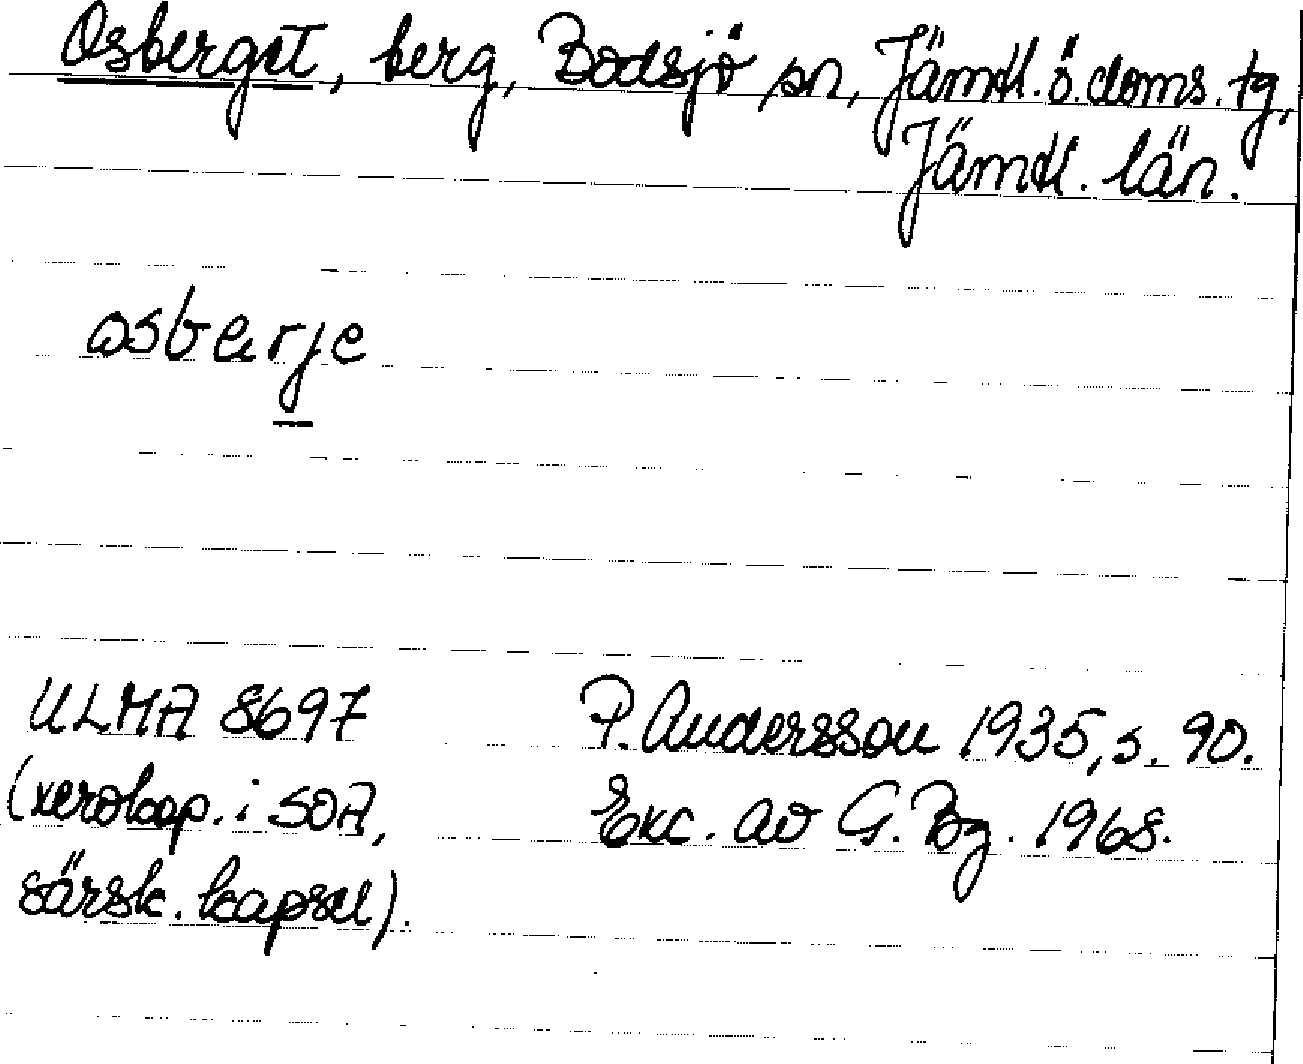 Osberget, berg, Bodsjö sn, Jämtl. ö. doms. tg,
Jämtl. län.
osberje
ULMA 8697
(xerokop. i SOA,
särsk. kapsel).
P. Andersson 1935, s. 90.
Exc. av G. Bg. 1968.